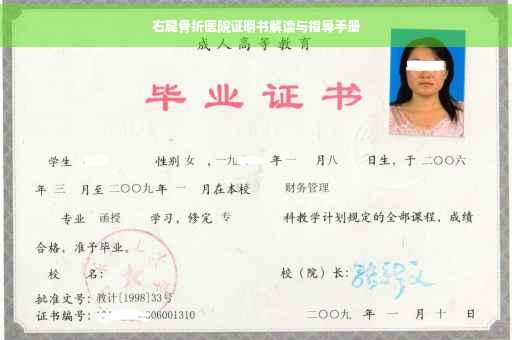 右腿骨折医院证明书解读与指导手册
成人高等教育
毕业证书
学生 性别 女 ，一九 年一 月八 日生，于二〇〇六
年 三 月至二〇〇九年 一 月在本校 财务管理
专业 函授 学习，修完 专 科教学计划规定的全部课程，成绩
合格，准予毕业。
校 名： 校（院）长：
批准文号：教计[1998]33号
证书编号： 06001310 二〇〇九 年 一 月 十 日